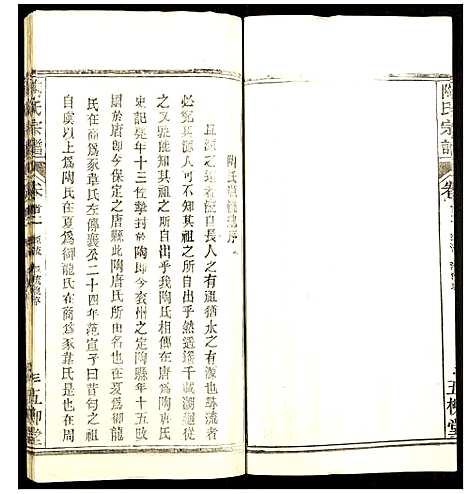 陶氏宗譜
五柳堂
陶氏
序
且源之遠者流自長人之有祖猶水之有源也尋流者
必覓其源人可不知其祖之所自出乎然遙遙千載溯厥從
之又烏能知其祖之所自出乎我陶氏相傳在唐為陶唐氏
史記堯年十三佐摯封於陶即今兗州之定陶縣年十五改
封於唐即今保定之唐縣此陶唐氏所由名也在夏為御龍
氏在商為豕韋氏左傳襄公二十四年范宣子曰昔匄之祖
自虞以上為陶氏在夏為御龍氏在商為豕韋氏是也在周
氏宗譜
卷首
五柳堂